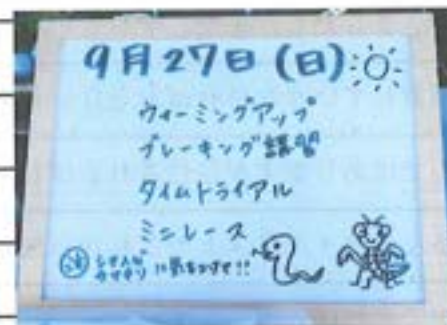 9月27日(日)
ウォーミングアップ
ブレーキング講習
タイムトライアル
ミニレース
に気をつけて!!